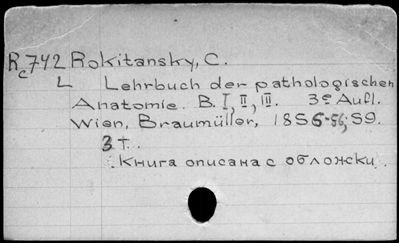 Rc742 Rokitansky, C.
L Lehrbuch der pathologischen
Anatomie. B. I, II, III. 3e Aufl.
Wien, Braumüller, 1855-56, 59.
3 т.
Книга описана с обложки.